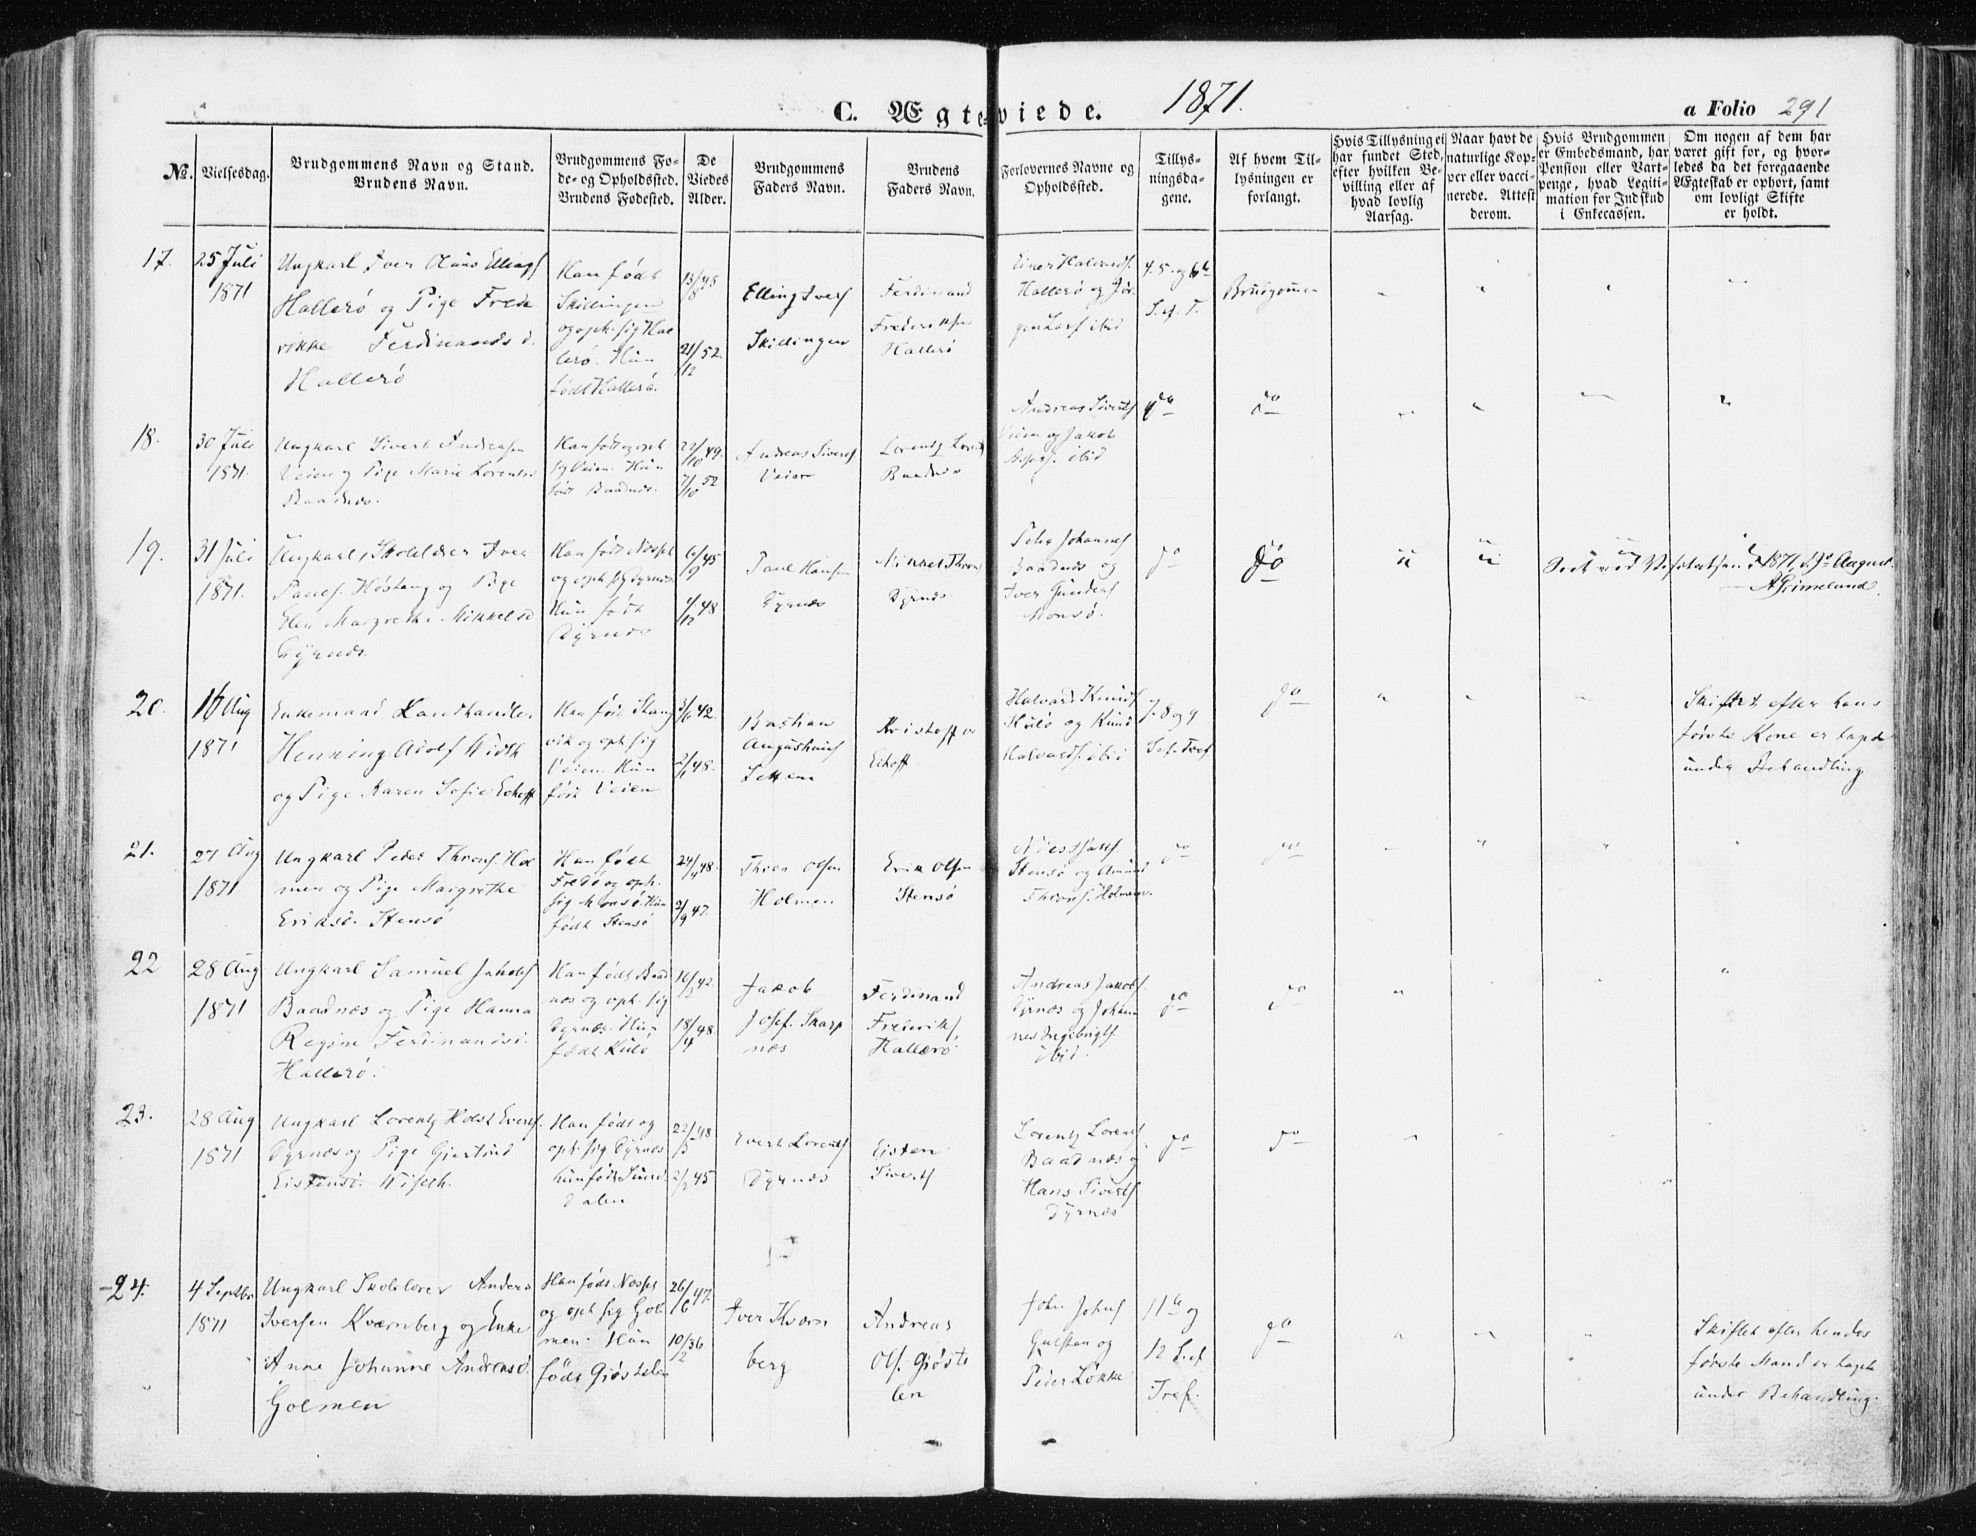 C. Ægteviede. 1871. a Folio 291
No. Vielsesdag. Brudgommens Navn og Stand. Brudens Navn. Brudgommens Føde- og Opholdssted. Brudens Fødested. De Viedes Alder. Brudgommens Faders Navn. Brudens Faders Navn. Forlovernes Navne og Opholdssted. Tillysningsdagene. Af hvem Tillysningen er forlangt. Hvis Tillysning ei har fundet Sted, efter hvilken Bevilling eller af hvad lovlig Aarsag. Naar havt de naturlige Kopper eller vaccinerede. Attest derom. Hvis Brudgommen er Embedsmand, har Pension eller Vartpenge, hvad Legitimation for Indskud i Enkecassen. Om nogen af dem har været gift før, og hvorledes da det foregaaende Ægteskab er ophørt, samt om lovligt Skifte er holdt.
17. 25 Juli 1871
Ungkarl Iver Olaus Ellings
Hallerø og Pige Frede
rikke Ferdinandsd.
Hallerø
Han født
Skillingen
og oph. sig Hal
lerø. Hun
født Hallerø.
13/8 45
21/12 52.
Elling Ivers
Skillingen
Ferdinand
Frederiksen
Hallerø
Einer Halvords.
Hallerø og Jør
gen Lars ibid
4. 5. og 6te
S. ef. T.
Brudgommen
18. 30 Juli 1871.
Ungkarl Sivert Andreasen
Veien og Pige Marie Lorentsd
Baadnes.
Han født og oph
sig Veien. Hun
født Baadnes.
22/10 49.
7/10 52
Andreas Siverts
Veien
Lorentz
Baadnes
Andreas Siverts
Veien og Jakob
ibid
do
do
19. 31 Juli 1871.
Ungkarl, Skolelærer Iver
Pauls. Høstang og Pige
Elen Margrethe Mikkelsd
Dyrnes.
Han født Nesset
og oph sig Dyrnes
Hun født
Dyrnes
6/9 45
4/12 48
Paul Hansen
Dyrnes
Mikkel Thrond
Dyrnes.
Peter Johannes
Baadnes og
Iver Gunders
Monsø.
do
do
Seet ved Visitatsen d. 1871, d. 7de August.
A Grimelund.
20. 16 Aug 1871
Enkemand Landhandler
Henning Adolf Width
og Pige Karen Sofie Eckhoff
Han født Stang
vik og oph sig
Veien. Hun
født Veien
3/6 42.
2/1 48.
Bastian
Augustinus
Settem
Kristoffer
Eckoff.
Halvard Knuds
Kulø og Knud
Halvards. ibid
7. 8 og 9
S. ef. Tref
do
Skiftet efter hans
første Kone er taget
under Behandling
21. 27 Aug 1871
Ungkarl Peder Throns. Hol
men og Pige Margrethe
Eriksd. Stensø
Han født
Fredø og oph.
sig Monsø. Hun
født Stensø
24/4 48.
2/9 47.
Thron Olsen
Holmen
Erik Olsen
Stensø
Stensø og Amund
Throns. Holmen.
do
do
22 28 Aug 1871
Ungkarl Samuel Jakobs
Baadnæs og Pige Hanna
Regine Ferdinandsd.
Hallerø.
Han født Baad
nes og oph. sig
Dyrnes. Hun
født Kulø
16/2 42.
18/4 48.
Jakob
Josef. Skarp
næs
Ferdinand
Frederiks,
Hallerø.
Andreas Jakobs.
Dyrnes og Johan
nes Ingebrigts.
ibid.
do
do
23. 28 Aug 1871
Ungkarl Lorentz Holst Everts.
Dyrnæs og Pige Gjertrud
Eistensd. Viseth.
Han født og
oph. sig Dyrnes
hun født Sund
dalen
22/5 48
2/2 45
Evert Lorents
Dyrnæs
Eisten
Siverts
Lorentz Lorents
Baadnæs og
Hans Siverts
Dyrnæs
do
do
24. 4 Septbr 1871
Ungkarl Skolelærer Anders
Iversen Kvernberg og Enke
Anne Johanne Andreasd.
Golmen
Han født Nesset
og oph. sig Gol
men. Hun
født Gjøstelen
26/6 47.
10/2 36
Iver Kvern
berg
Andreas
Ols. Gjøste
len
John Johns
Gulstan og
Peder Løkke
11te og
12 S. ef
Tref.
do
Skiftet efter hendes
første Mand er taget
under Behandling.